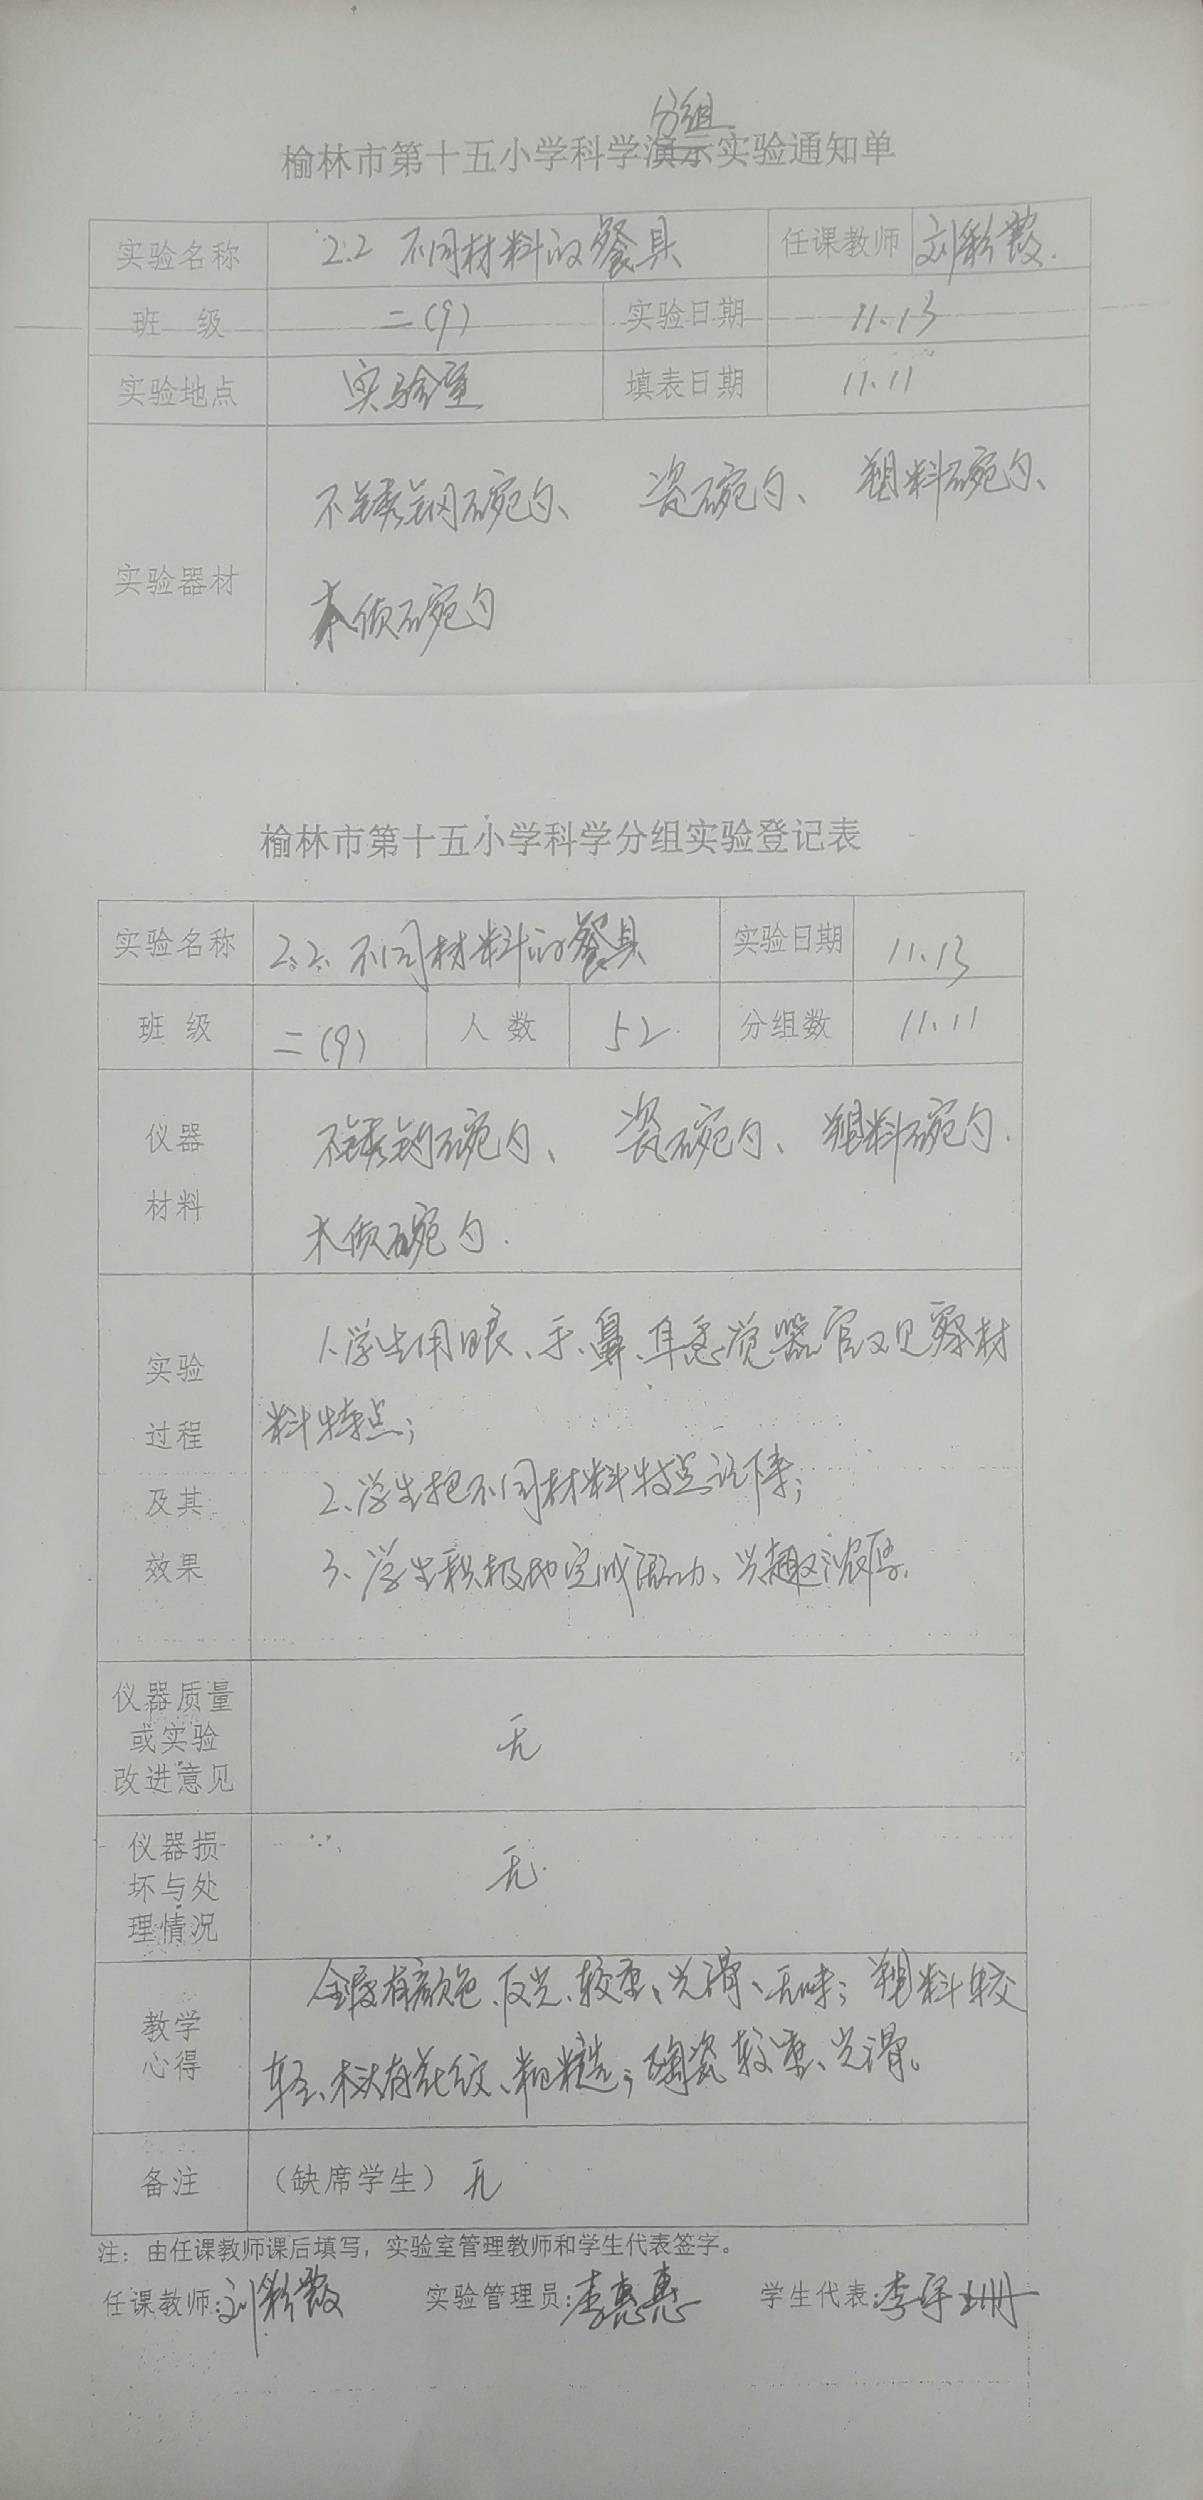 分组
榆林市第十五小学科学演示实验通知单
实验名称 2.2 不同材料的餐具 任课教师 刘彩霞.
班 级 二(9) 实验日期 11.13
实验地点 实验室 填表日期 11.11
不锈钢碗勺、 瓷碗勺、 塑料碗勺、
实验器材
木质碗勺
榆林市第十五小学科学分组实验登记表
实验名称 2.2. 不同材料的餐具 实验日期 11.13
班 级 二(9) 人 数 52. 分组数 11.11
仪器 不锈钢碗勺、 瓷碗勺、 塑料碗勺.
材料 木质碗勺.
实验 1、学生用眼、手、鼻、耳感觉器官观察材
过程 料特点;
及其 2、学生把不同材料特点记下来;
效果 3、学生积极地完成活动、兴趣浓厚.
仪器质量
或实验 无
改进意见
仪器损
坏与处 无.
理情况
金属有颜色、反光、较重、光滑、无味; 塑料较
教学
心得 轻、木头有花纹、粗糙; 陶瓷较重、光滑。
备注 (缺席学生) 无
注: 由任课教师课后填写, 实验室管理教师和学生代表签字。
任课教师: 刘彩霞 实验管理员: 李惠惠 学生代表: 李宇珊